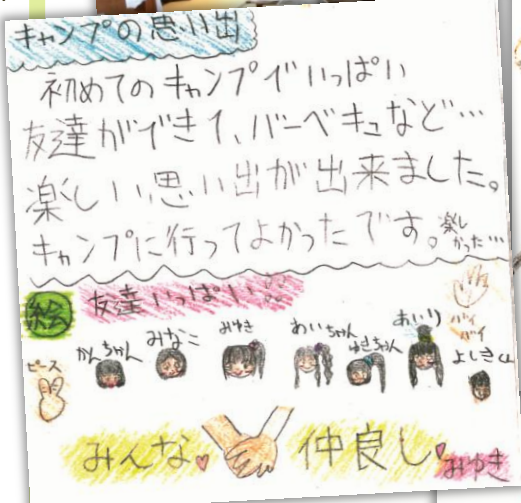 キャンプの思い出
初めてのキャンプでいっぱい
友達ができて、バーベキュなど…
楽しい思い出が出来ました。
キャンプに行ってよかったです。楽しかった…
絵 友達いっぱい
ピース かんちゃん みなこ みゆき あいちゃん ゆきちゃん あいり バイバイ よしきくん
みんな 仲良し みゆき